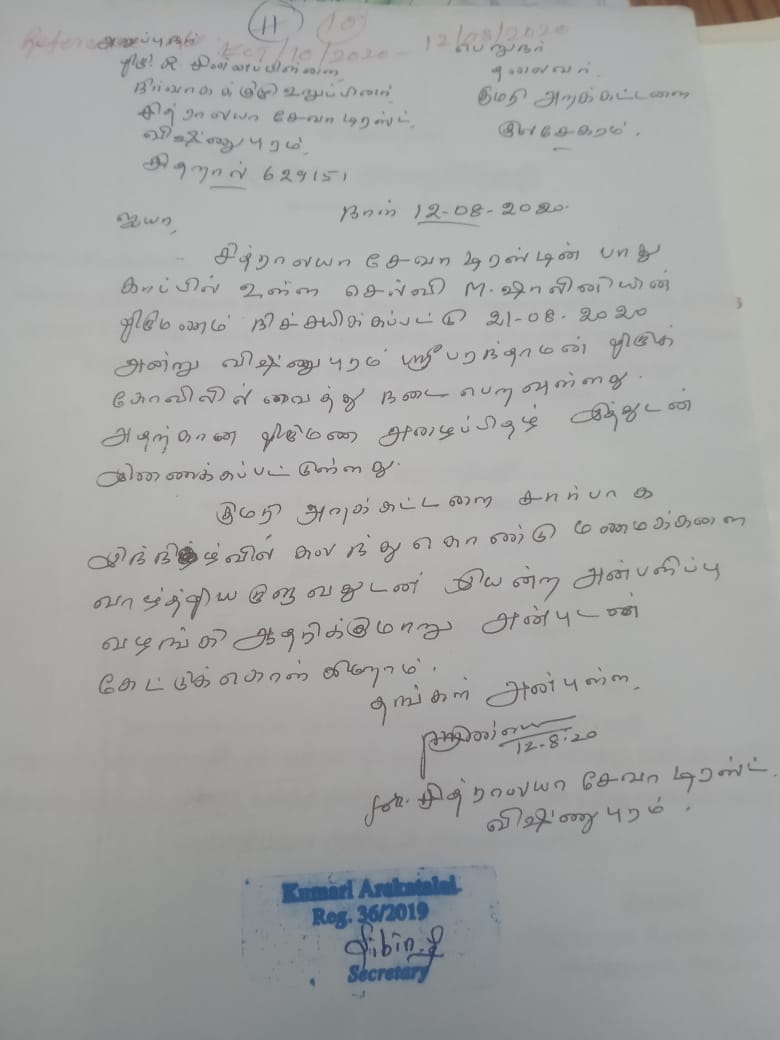 11 10
Reference KCT/10/2020 - 12/08/2020
அனுப்புநர்
பெறுநர்
திரு R சின்னப்பிள்ளை
தலைவர்.
நிர்வாகக்குழு உறுப்பினர்
குமரி அறக்கட்டளை
சித்ராலயா சேவா டிரஸ்ட்.
குலசேகரம்.
விஷ்ணுபுரம்.
சிதறால் 629151
ஐயா,
நாள் 12-08-2020.
சித்ராலயா சேவா டிரஸ்டின் பாது
காப்பில் உள்ள செல்வி M. ஷாலினியின்
திருமணம் நிச்சயிக்கப்பட்டு 21-08-2020
அன்று விஷ்ணுபுரம் ஸ்ரீபரந்தாமன் திருக்
கோவிலில் வைத்து நடைபெறவுள்ளது.
அதற்கான திருமண அழைப்பிதழ் இத்துடன்
இணைக்கப்பட்டுள்ளது.
குமரி அறக்கட்டளை சார்பாக
இந்நிகழ்வில் கலந்து கொண்டு மணமக்களை
வாழ்த்தியருளுவதுடன் இயன்ற அன்பளிப்பு
வழங்கி ஆதரிக்குமாறு அன்புடன்
கேட்டுக்கொள்கிறோம்.
தங்கள் அன்புள்ள,
12-8-20
for. சித்ராலயா சேவா டிரஸ்ட்.
விஷ்ணுபுரம்.
Kumari Arakatalai.
Reg. 36/2019
Secretary